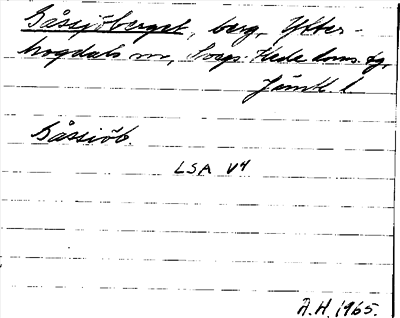 Gåssjöberget, berg, Ytter-
hogdals sn, Svegs-Hede doms. tg,
Jämtl. l.
Gåssjöb.
LSA V4
A.H. 1965.